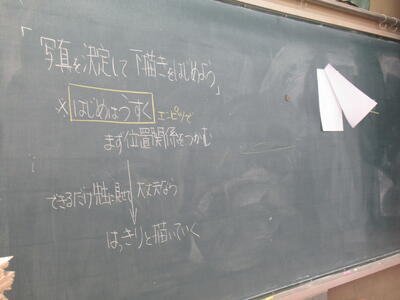 「写真を決定して下描きをはじめよう」
※はじめはうすく エンピツで
まず位置関係をつかむ
できるだけ先生に見せて 大丈夫なら
はっきりと描いていく